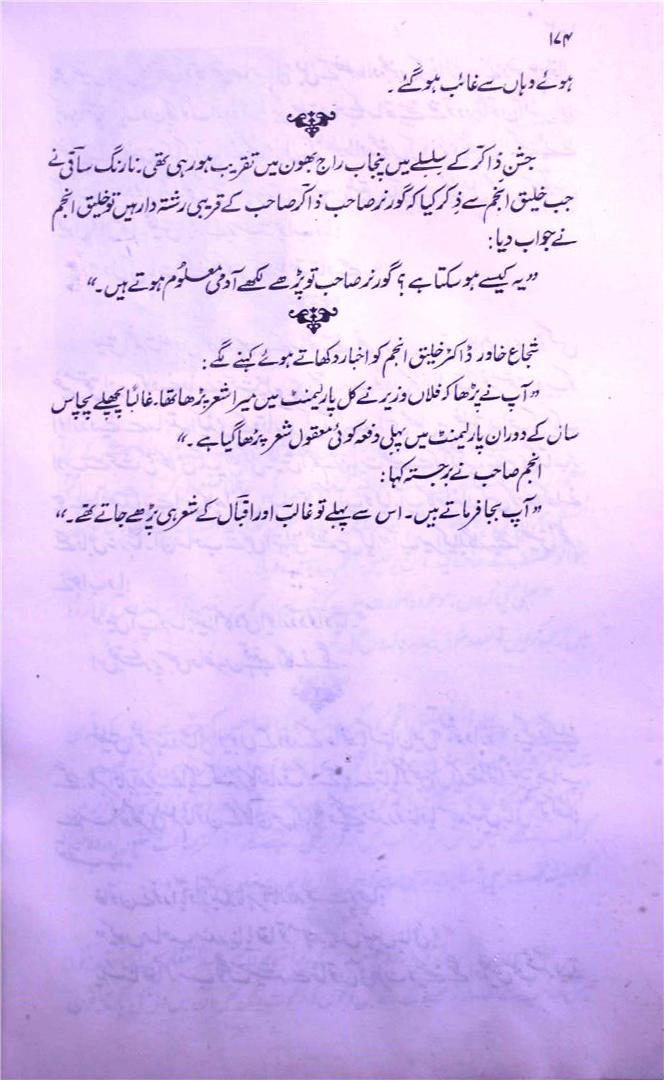 ۱۷۴
ہوئے وہاں سے غائب ہو گئے۔
جشن ذاکر کے سلسلے میں پنجاب راج بھون میں تقریب ہو رہی تھی۔ نارنگ ساقی نے
جب خلیق انجم سے ذکر کیا کہ گورنر صاحب ذاکر صاحب کے قریبی رشتہ دار ہیں تو خلیق انجم
نے جواب دیا:
”یہ کیسے ہو سکتا ہے؟ گورنر صاحب تو پڑھے لکھے آدمی معلوم ہوتے ہیں۔“
شجاع خاور ڈاکٹر خلیق انجم کو اخبار دکھاتے ہوئے کہنے لگے:
”آپ نے پڑھا کہ فلاں وزیر نے کل پارلیمنٹ میں میرا شعر پڑھا تھا۔ غالباً پچھلے پچاس
سال کے دوران پارلیمنٹ میں پہلی دفعہ کوئی معقول شعر پڑھا گیا ہے۔“
انجم صاحب نے برجستہ کہا:
”آپ بجا فرماتے ہیں۔ اس سے پہلے تو غالب اور اقبال کے شعر ہی پڑھے جاتے تھے۔“